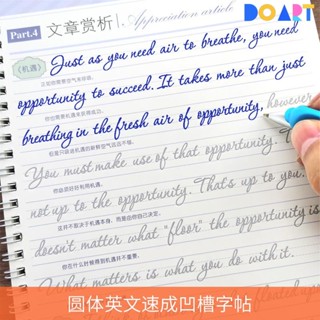 DOART
Part.4 文章赏析 Appreciation article
《机遇》
Just as you need air to breathe, you need
正如你需要空气来呼吸,
opportunity to succeed. It takes more than just
breathing in the fresh air of opportunity, however
You must make use of that opportunity. That's
not up to the opportunity. That's up to you.
doesn't matter what "floor" the opportunity is
What matters is what you do with it.
圆体英文速成凹槽字帖